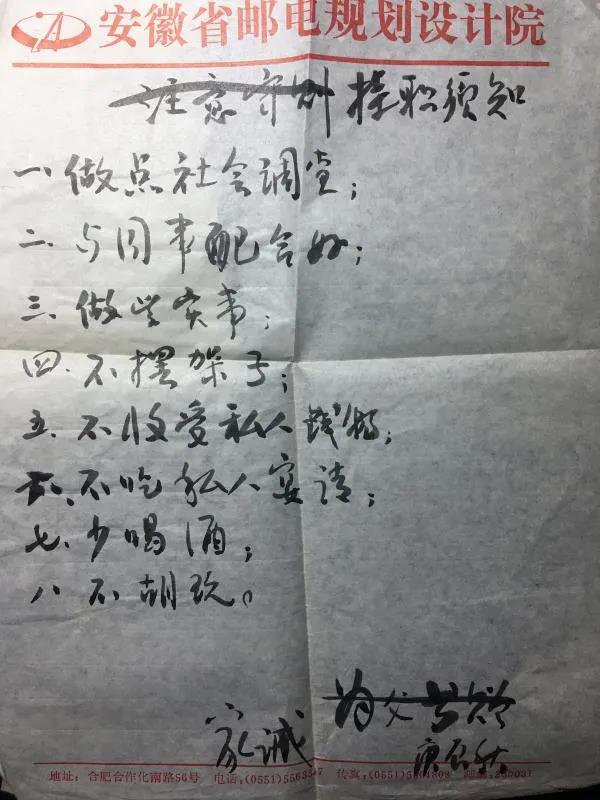 安徽省邮电规划设计院
注意守则 挂职须知
一、做点社会调查；
二、与同事配合好；
三、做些实事；
四、不摆架子；
五、不收受私人钱物；
六、不吃私人宴请；
七、少喝酒；
八、不胡玩。
为父
家诫 庚辰秋
地址：合肥合作化南路56号 电话：(0551) 传真：(0551)